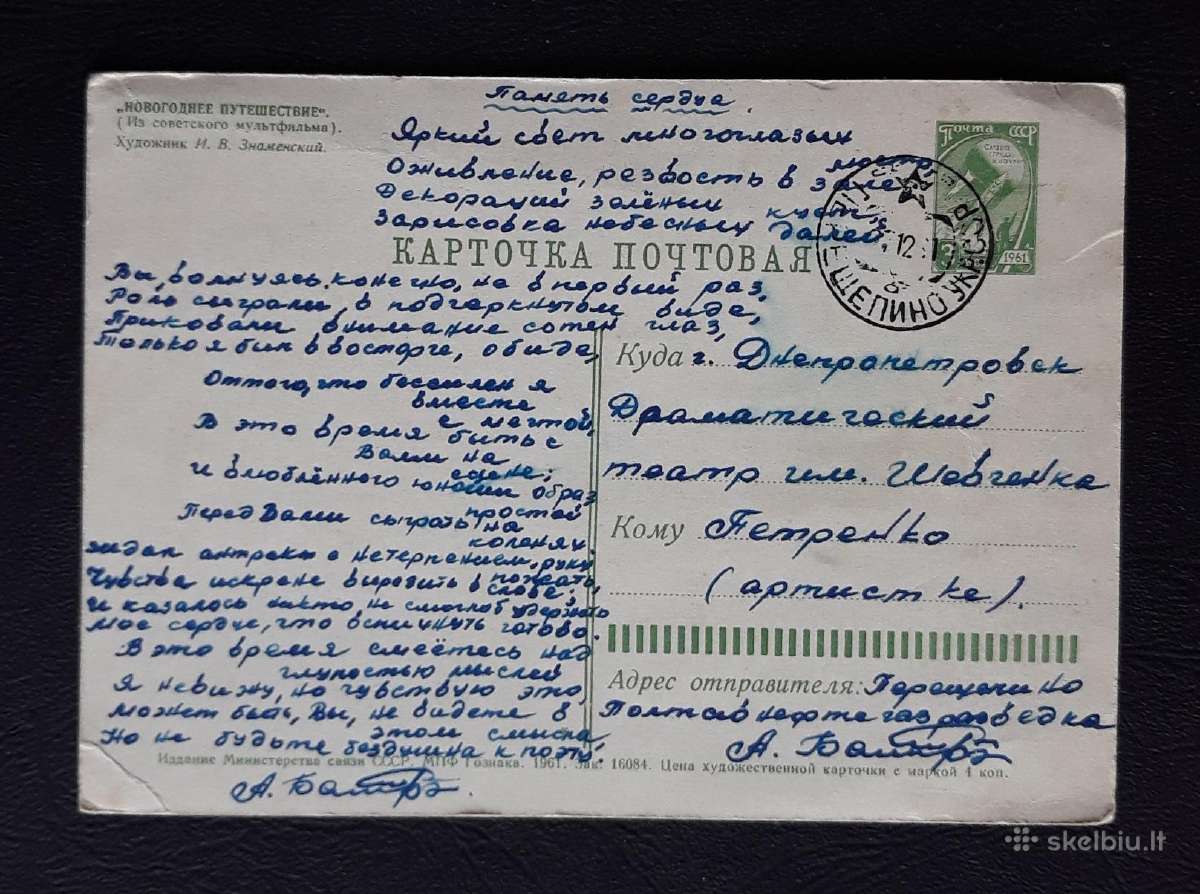 „НОВОГОДНЕЕ ПУТЕШЕСТВИЕ“.
(Из советского мультфильма).
Художник И. В. Знаменский.
Память сердца.
Яркий свет многоглазых
люстр
Оживление, резвость в зале
Декораций зелёных
куст,
Зарисовка небесных далей
Почта СССР
1961
12
ЩЕПИНО УК.ССР
КАРТОЧКА ПОЧТОВАЯ
Вы, волнуясь, конечно, не в первый раз,
Роль сыграли в подчеркнутом виде,
Приковали внимание сотен глаз,
Только я был в восторге, обиде,
Оттого, что бессилен я
вместе
с мечтой,
В это время быть с
Вами на
сцене;
И влюблённого юноши образ
простой
Перед Вами сыграть на
коленях.
Ждал антракты с нетерпением, руку
пожать,
Чувства искрене выразить в слове.
И казалось никто не смог б удержать
Мое сердце, что вспыхнуть готово.
В это время смеётесь над
глупостью мыслей
Я не вижу, но чувствую это,
Может быть, Вы, не видете в
этом смысла
Но не будьте бездушна к поэту.
А.
Куда г. Днепропетровск
Драматический
театр им. Шевченка
Кому Петренко
(артистке).
Адрес отправителя: Перещепино
Полтавнефтегазразведка
А.
Издание Министерства связи СССР. МПФ Гознака. 1961. Зак. 16084. Цена художественной карточки с маркой 4 коп.
skelbiu.lt